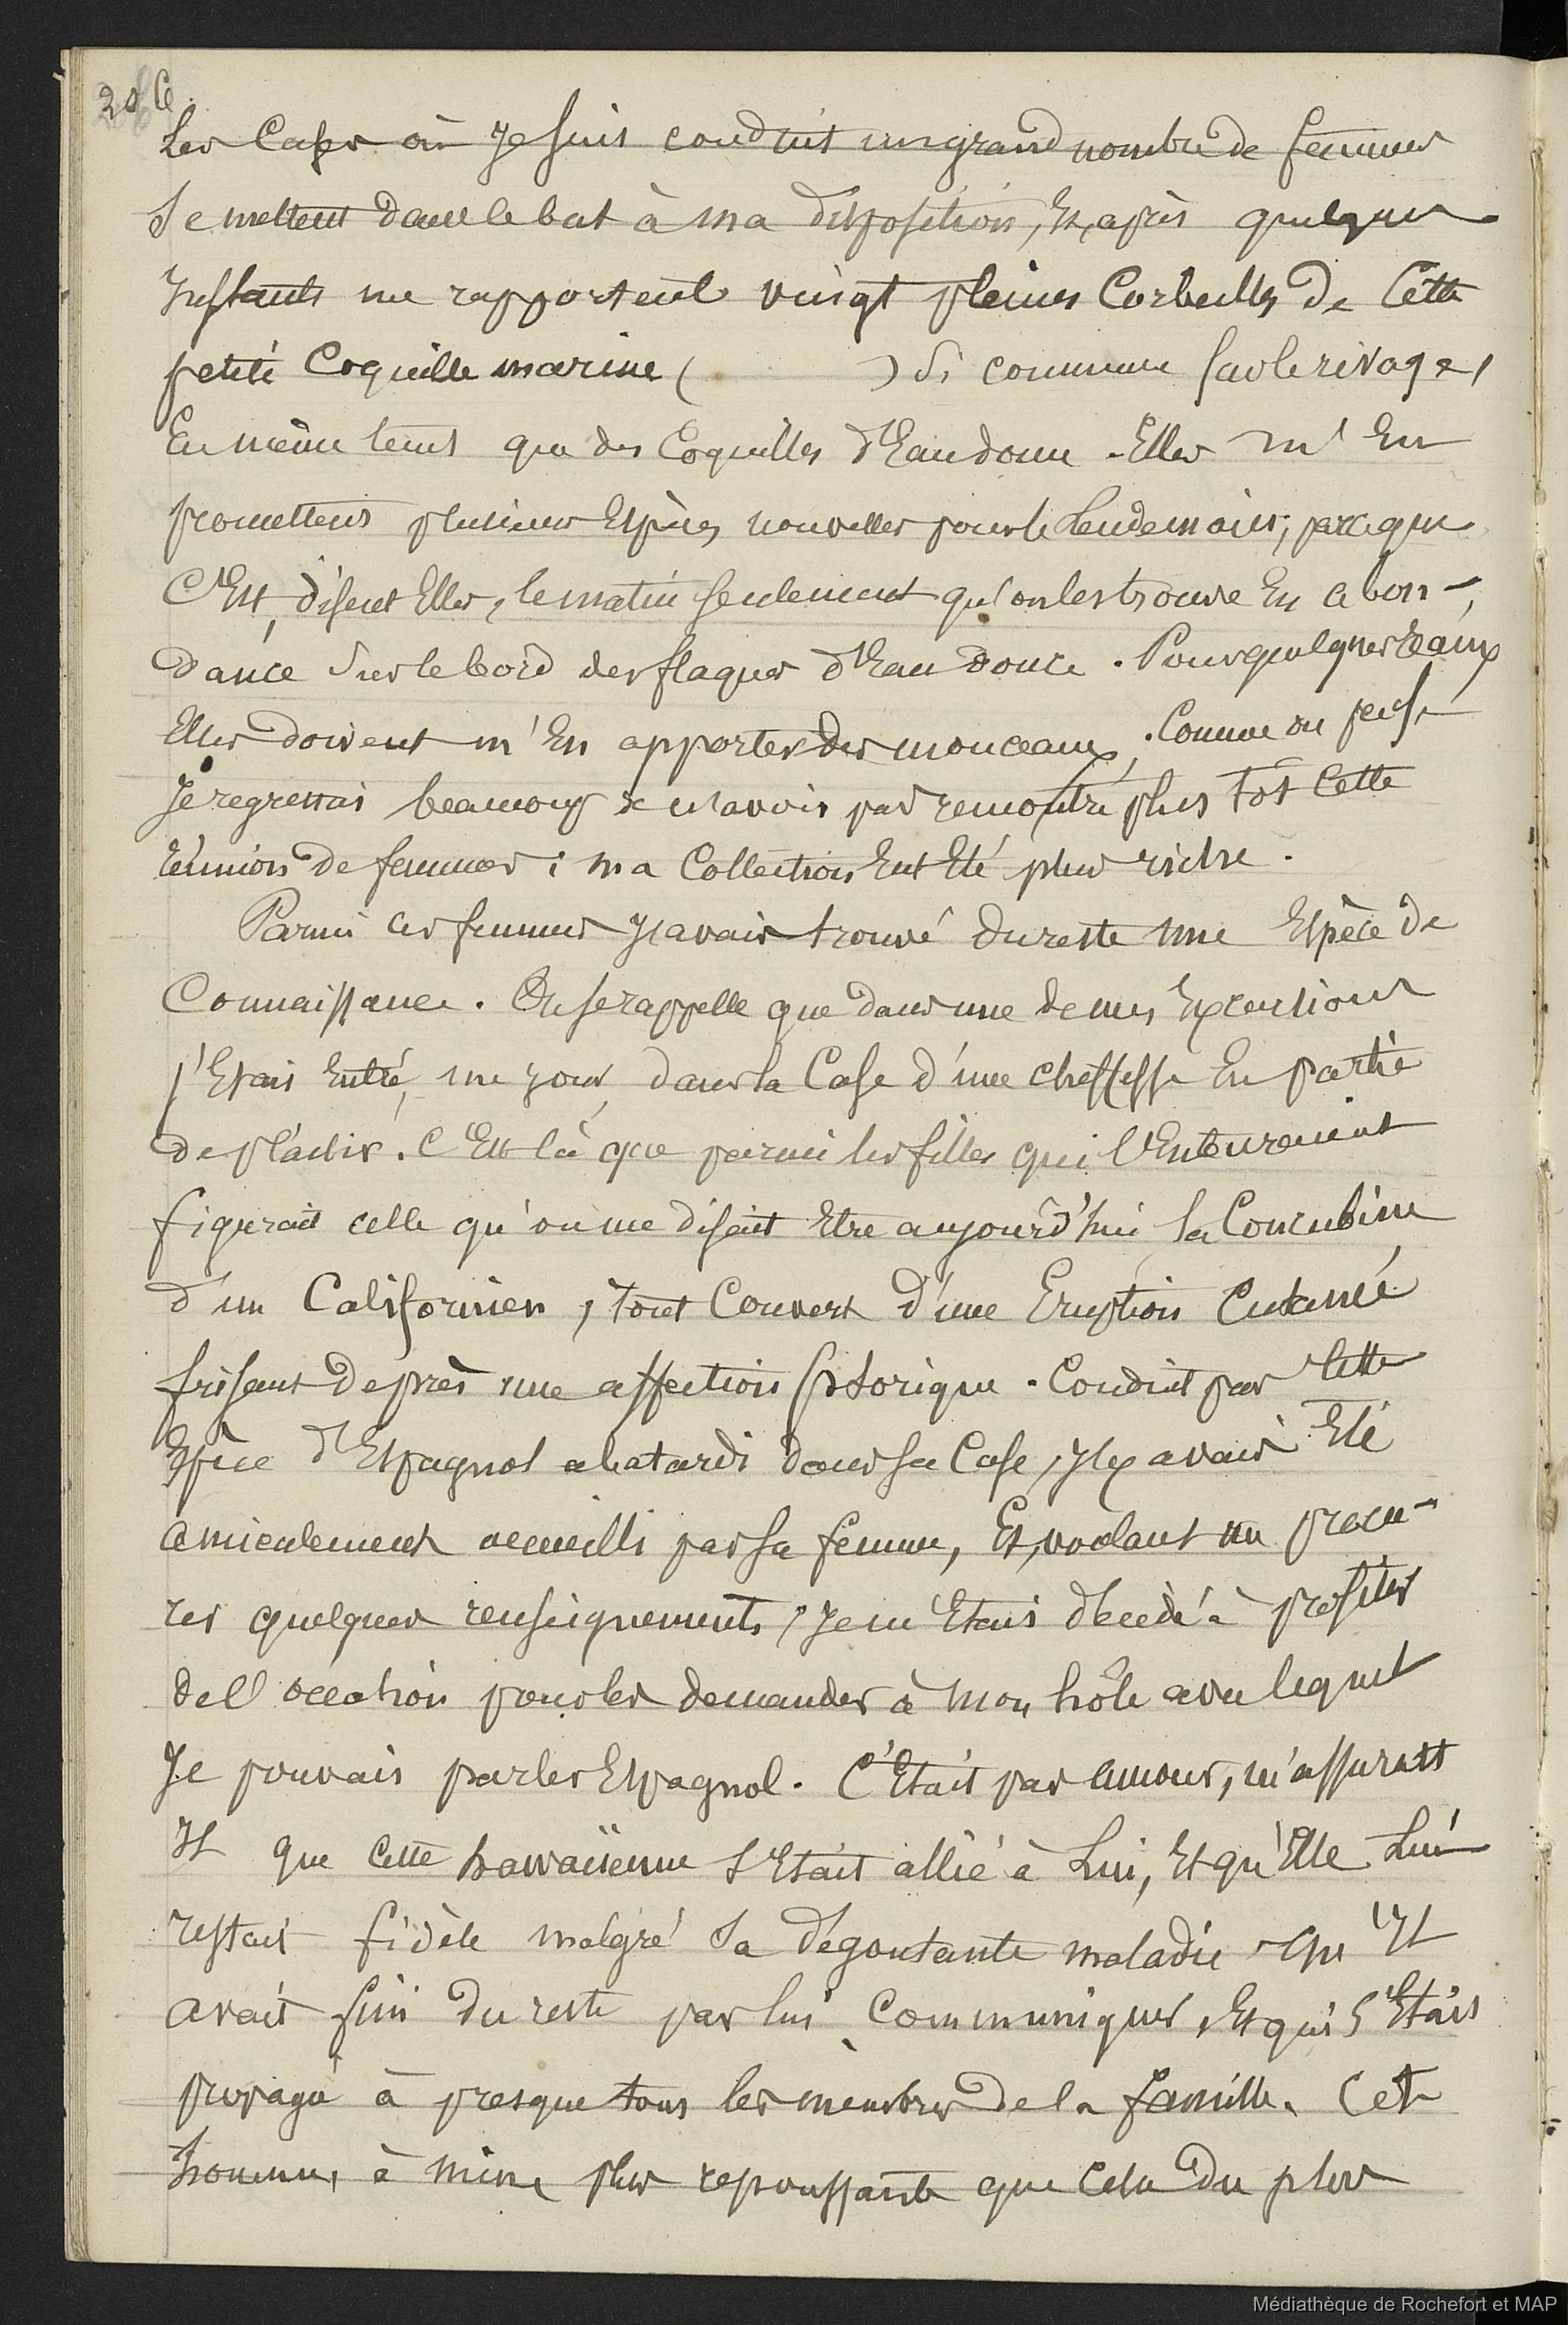 Les Cases où Je suis conduit un grand nombre de femmes
se mettent dans le but à ma disposition, Et, après quelques
Instants me rapportent vingt pleines Corbeilles de Cette
petite Coquille marine ( ) si commune sur le rivage,
En même tems que des Coquilles d'Eau douce. Elles m'En
promettent plusieurs Espèces nouvelles pour le lendemain, parceque
C'Est, disent Elles, le matin seulement qu'on les trouve En abon-
dance sur le bord des flaques d'Eau douce. Pour quelques réaux
Elles doivent m'En apporter des monceaux. Comme on pense
Je regrettais beaucoup de n'avoir pas rencontré plus tôt Cette
réunion de femmes : ma Collection Eut Eté plus riche.
Parmi ces femmes J'avais trouvé du reste une Espèce de
Connaissance. On se rappelle que dans une de mes Excursions
j'Etais Entré, un jour, dans la Case d'une cheffesse En partie
de plaisir. C'Est là que parmi les filles qui l'Entouraient
figurait celle qu'on me disait Etre aujourd'hui la Concubine
d'un Californien, tout Couvert d'une Eruption Cutanée
frisant de près une affection psorique. Conduit par Cette
Espèce d'Espagnol abatardi dans sa Case, J'y avais Eté
amicalement accueilli par sa femme, Et, voulant me procu-
rer quelques renseignements, Je m'Etais décidé à profiter
de l'occation pour les demander à mon hôte avec lequel
Je pouvais parler Espagnol. C'Etait par amour, m'assurait
Il que cette hawaïenne s'Etait allié à Lui, Et qu'Elle Lui
restait fidèle malgré sa dégoutante maladie qu'Il
avait fini du reste par lui Communiquer, Et qui s'Etait
propagé à presque tous les membres de la famille. Cet
homme, à mine plus repoussante que celle du plus
Médiathèque de Rochefort et MAP